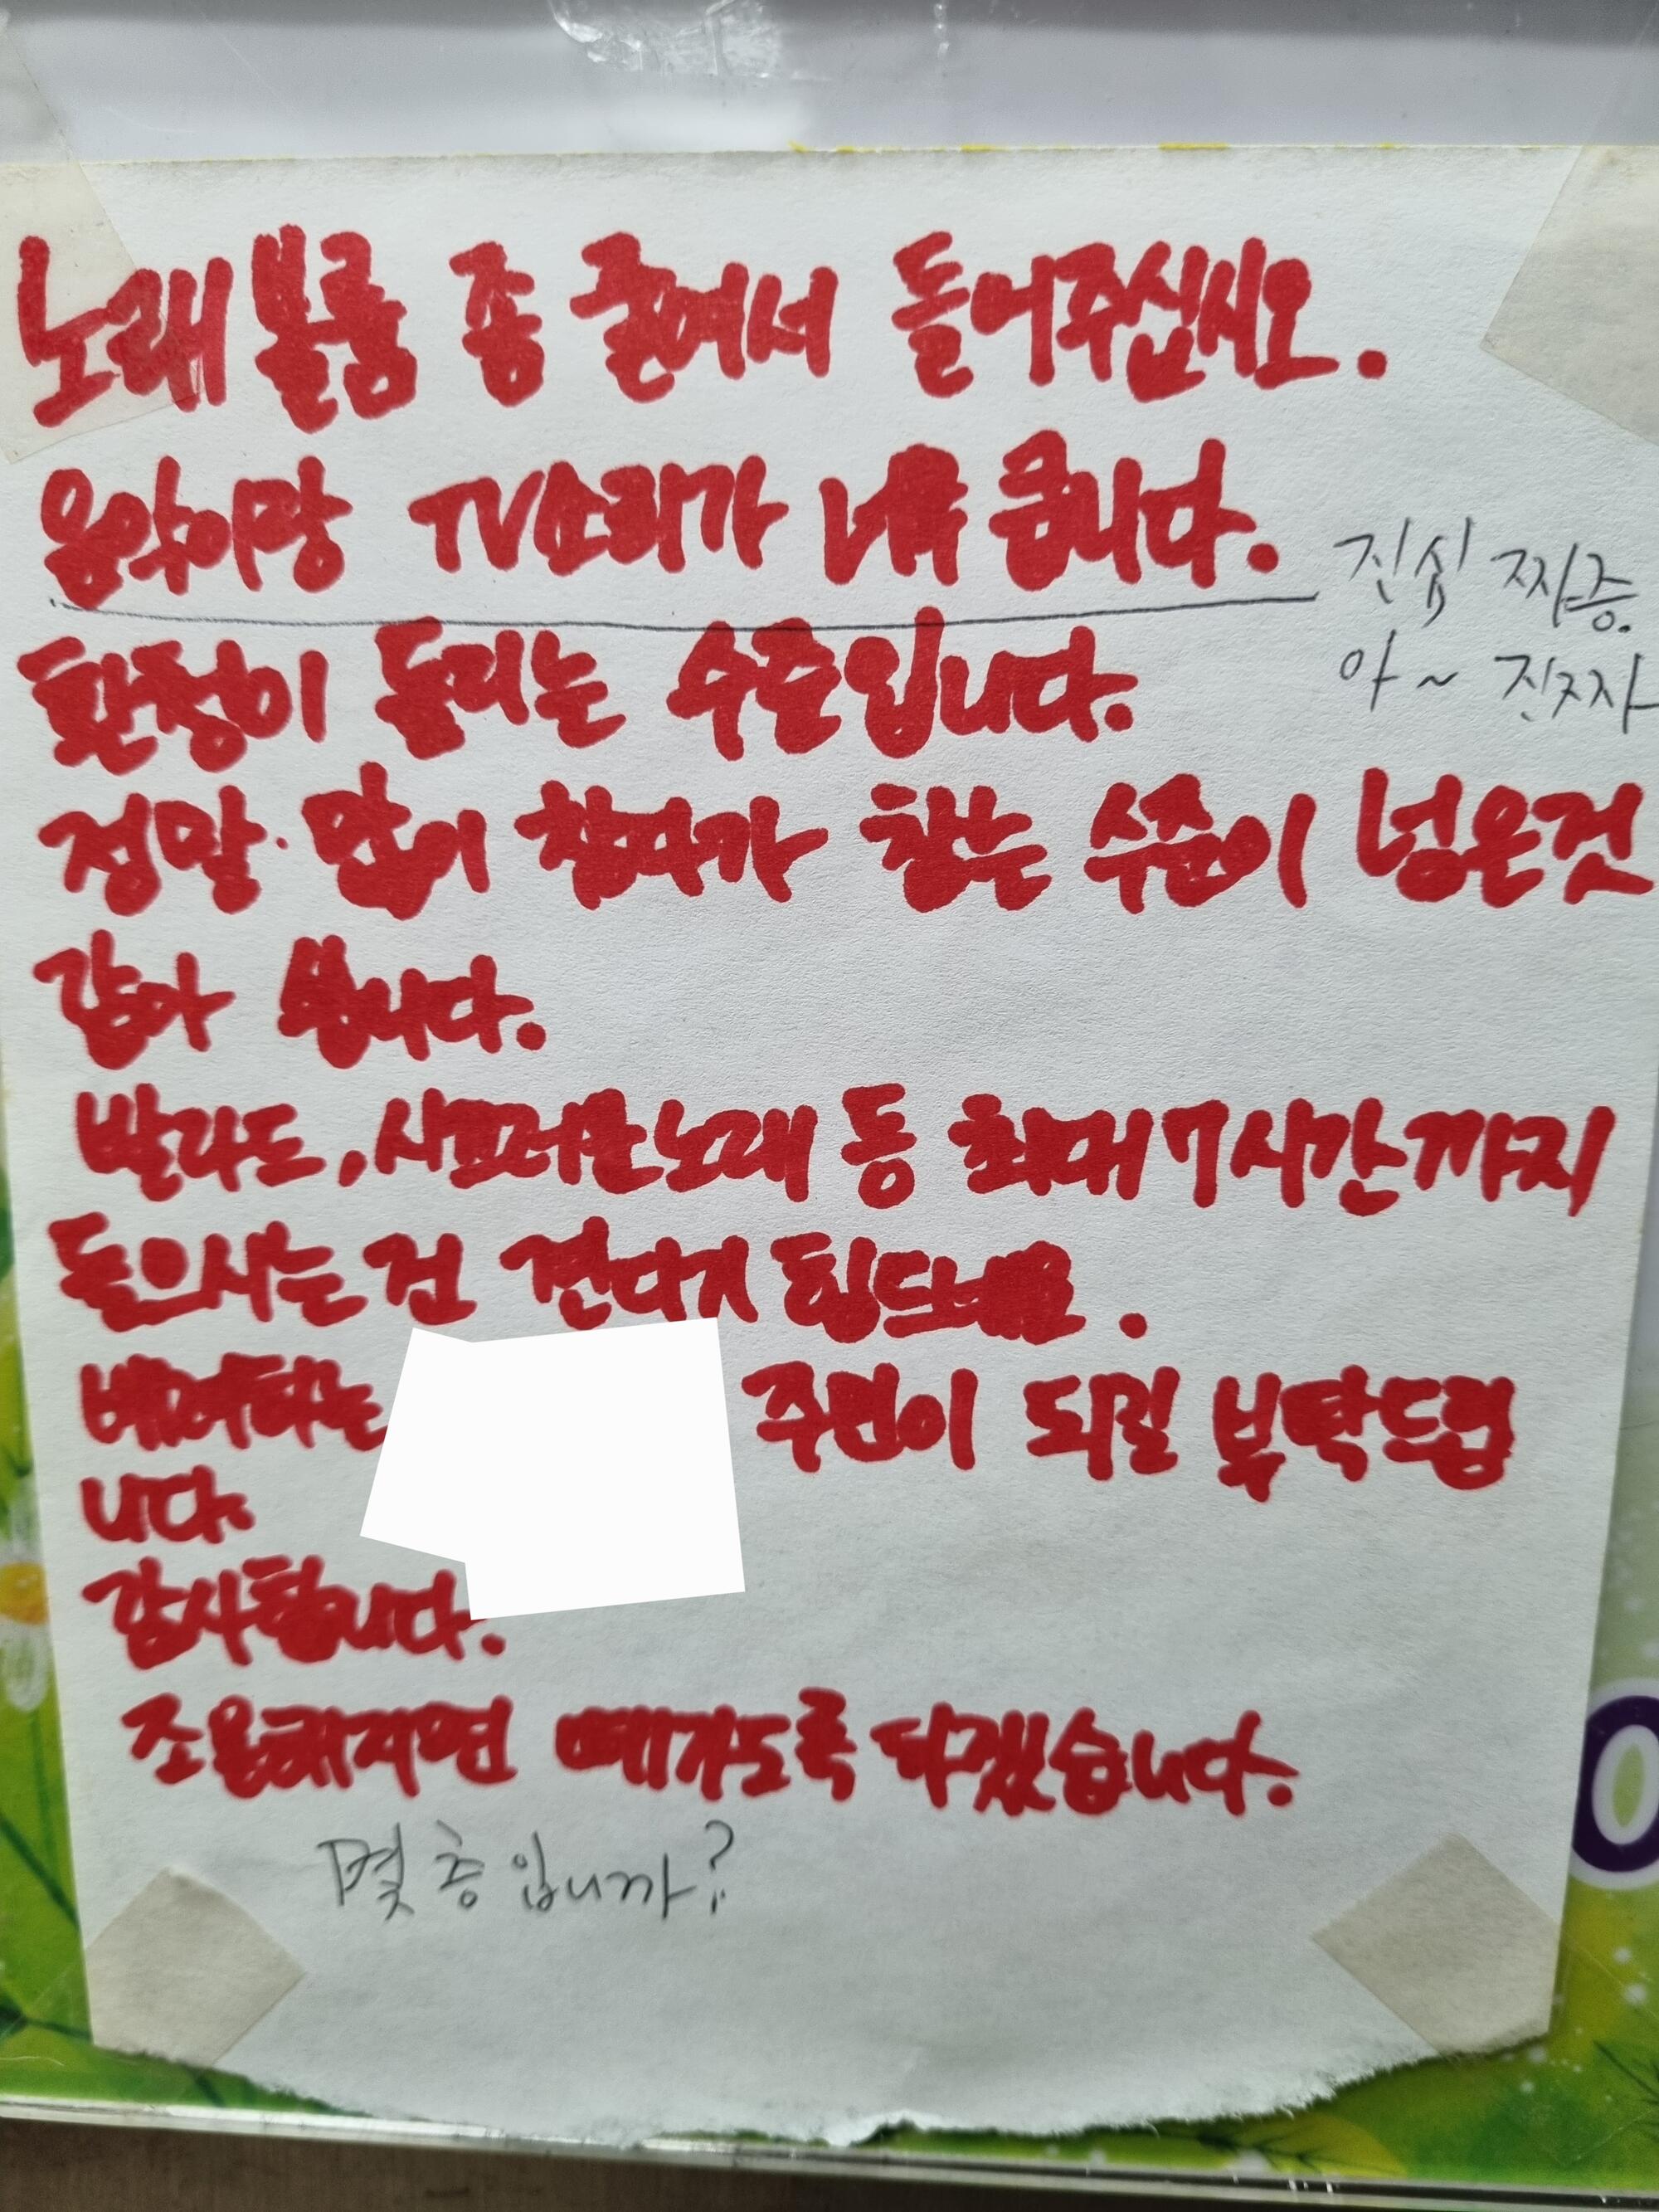 노래 볼륨 좀 줄여서 들어주십시오.
음악이랑 TV소리가 너무 큽니다.
진심 짜증.
아~ 진짜
환장이 돌리는 수준입니다.
정말. 많이 참다가 참는 수준이 넘은것
같아 씁니다.
발라드, 시끄러운노래 등 최대 7시간까지
들으시는 건 견디기 힘드네요.
배려하는 주민이 되길 부탁드립
니다.
감사합니다.
조용해지면 떼가도록 하겠습니다.
몇 층입니까?